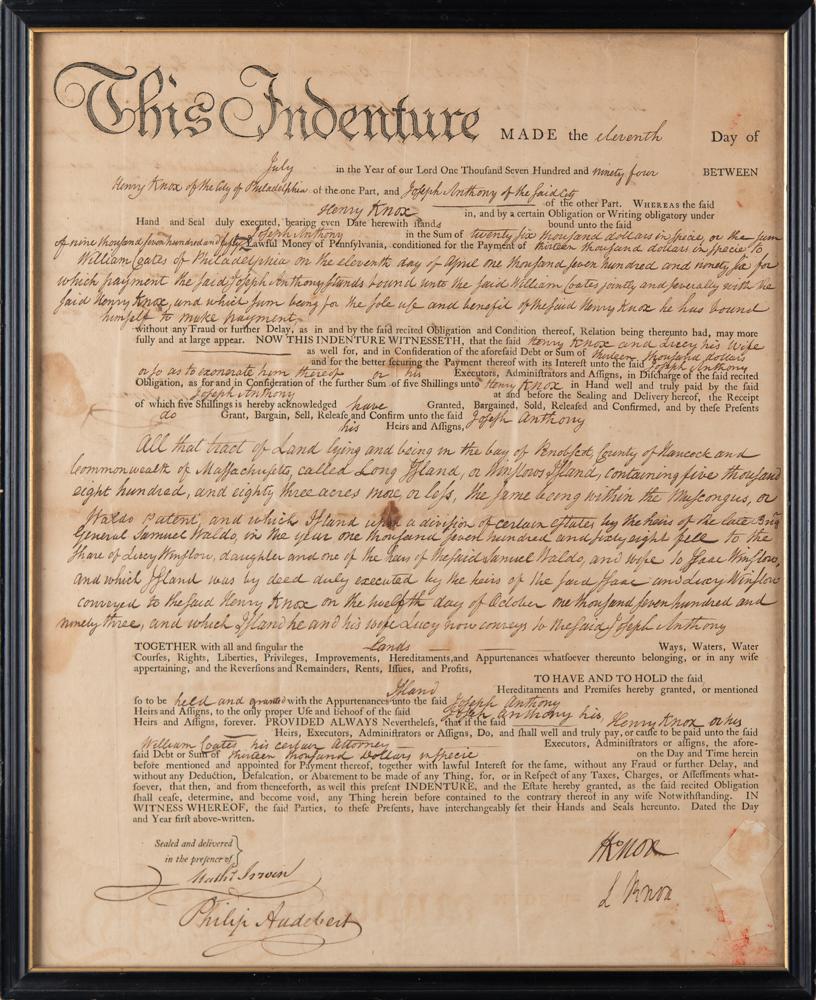 This Indenture MADE the eleventh Day of
July in the Year of our Lord One Thouſand Seven Hundred and ninety four BETWEEN
Henry Knox of the City of Philadelphia of the one Part, and Joseph Anthony of the said City
of the other Part. WHEREAS the ſaid
Henry Knox in, and by a certain Obligation or Writing obligatory under
Hand and Seal duly executed, bearing even Date herewith stands bound unto the ſaid
Joseph Anthony in the Sum of twenty six thousand dollars in specie, or the sum
of nine thousand seven hundred and fifty Lawful Money of Pennſylvania, conditioned for the Payment of thirteen thousand dollars in specie to
William Coates of Philadelphia on the eleventh day of April one thousand seven hundred and ninety six for
which payment the said Joseph Anthony stands bound unto the said William Coates jointly and severally with the
said Henry Knox, and which sum being for the sole use and benefit of the said Henry Knox he has bound
himself to make payment
without any Fraud or further Delay, as in and by the ſaid recited Obligation and Condition thereof, Relation being thereunto had, may more
fully and at large appear. NOW THIS INDENTURE WITNESSETH, that the ſaid Henry Knox and Lucy his Wife
as well for, and in Conſideration of the aforeſaid Debt or Sum of thirteen thousand dollars
and for the better ſecuring the Payment thereof with its Intereſt unto the ſaid Joseph Anthony
or so as to exonerate him thereof or his Executors, Adminiſtrators and Aſſigns, in Diſcharge of the ſaid recited
Obligation, as for and in Conſideration of the further Sum of five Shillings unto Henry Knox in Hand well and truly paid by the ſaid
Joseph Anthony at and before the Sealing and Delivery hereof, the Receipt
of which five Shillings is hereby acknowledged have Granted, Bargained, Sold, Releaſed and Confirmed, and by theſe Preſents
do Grant, Bargain, Sell, Releaſe and Confirm unto the ſaid Joseph Anthony
his Heirs and Aſſigns,
All that tract of Land lying and being in the bay of Penobscot, County of Hancock and
Commonwealth of Massachusetts, called Long Island, or Winslows Island, containing five thousand
eight hundred, and eighty three acres more or less, the same being within the Muscongus, or
Waldo patent, and which Island upon a division of certain estates by the heirs of the late Brig
General Samuel Waldo, in the year one thousand seven hundred and sixty eight fell to the
share of Lucy Winslow, daughter and one of the heirs of the said Samuel Waldo, and wife to Isaac Winslow,
and which Island was by deed duly executed by the heirs of the said Isaac and Lucy Winslow
conveyed to the said Henry Knox on the twelfth day of October one thousand seven hundred and
ninety three, and which Island he and his wife Lucy now conveys to the said Joseph Anthony
TOGETHER with all and ſingular the Lands Ways, Waters, Water
Courſes, Rights, Liberties, Privileges, Improvements, Hereditaments, and Appurtenances whatſoever thereunto belonging, or in any wiſe
appertaining, and the Reverſions and Remainders, Rents, Iſſues, and Profits,
TO HAVE AND TO HOLD the ſaid
Island Hereditaments and Premiſes hereby granted, or mentioned
ſo to be held and granted with the Appurtenances unto the ſaid Joseph Anthony
Heirs and Aſſigns, to the only proper Uſe and Behoof of the ſaid Joseph Anthony his
Heirs and Aſſigns, forever. PROVIDED ALWAYS Nevertheleſs, that if the ſaid Henry Knox or his
Heirs, Executors, Adminiſtrators or Aſſigns, Do, and ſhall well and truly pay, or cauſe to be paid unto the ſaid
William Coates his certain attorney Executors, Adminiſtrators or aſſigns, the afore-
ſaid Debt or Sum of thirteen thousand Dollars in specie on the Day and Time herein
before mentioned and appointed for Payment thereof, together with lawful Intereſt for the ſame, without any Fraud or further Delay, and
without any Deduction, Defalcation, or Abatement to be made of any Thing, for, or in Reſpect of any Taxes, Charges, or Aſſeſſments what-
ſoever, that then, and from thenceforth, as well this preſent INDENTURE, and the Eſtate hereby granted, as the ſaid recited Obligation
ſhall ceaſe, determine, and become void, any Thing herein before contained to the contrary thereof in any wiſe Notwithſtanding. IN
WITNESS WHEREOF, the ſaid Parties, to theſe Preſents, have interchangeably ſet their Hands and Seals hereunto. Dated the Day
and Year firſt above-written.
Sealed and delivered
in the preſence of
HKnox
Matth. Irwin
L Knox
Philip Audebert